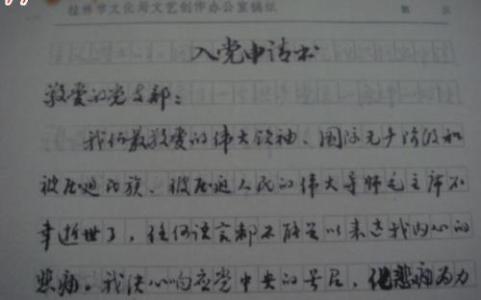 桂林市文化局文艺创作办公室稿纸 第 页
入党申请书
敬爱的党支部：
我们最敬爱的伟大领袖、国际无产阶级和
被压迫民族、被压迫人民的伟大导师毛主席不
幸逝世了，任何语言都不能言以表达我内心的
悲痛。我决心响应党中央的号召，化悲痛为力